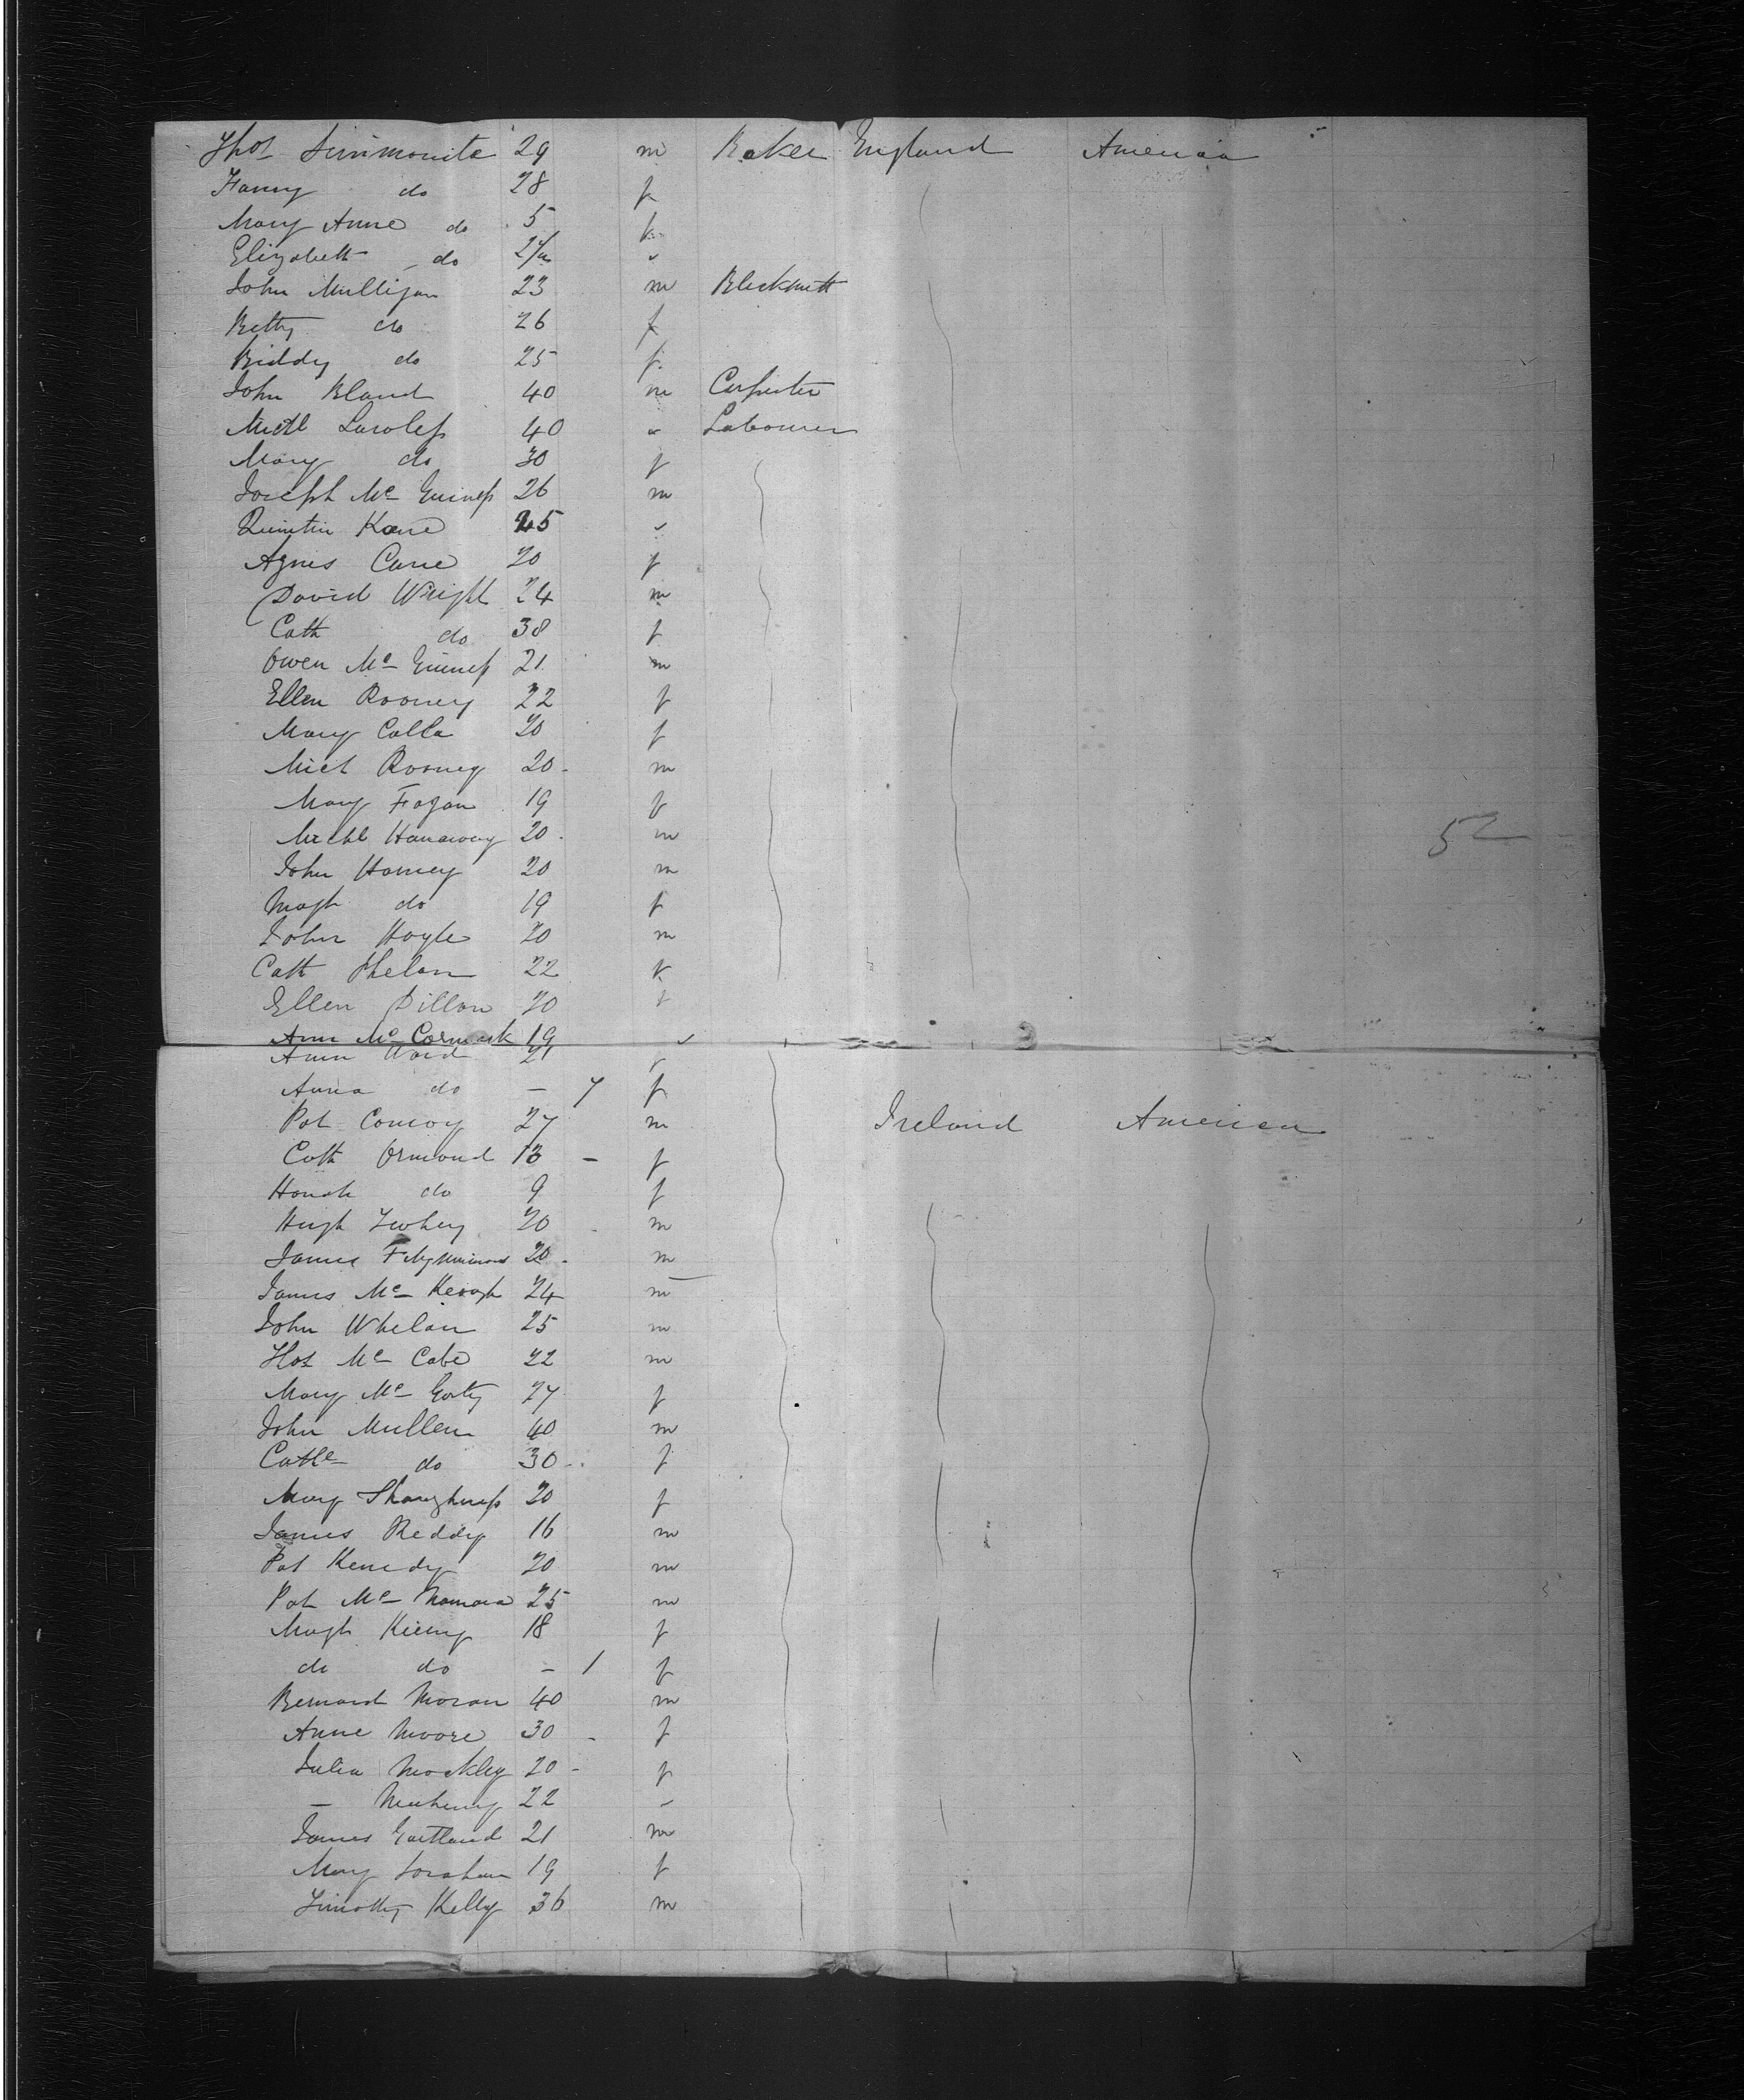 Thos Simmonite 29 m Baker England America
Fanny do 28 f
Mary Anne do 5 f
Elizabeth do
John Mulligan 23 m Blacksmith
Betty do 26 f
Biddy do 25 f
John Bland 40 m Carpenter
Michl Lawless 40 " Labourer
Mary do 30 f
Joseph Mc Guiness 26 m
Quintin Kane 45 "
Agnes Cane 20 f
David Wright 24 m
Cath do 38 f
Owen Mc Guiness 21 m
Ellen Rooney 22 f
Mary Calla 20 f
Mich Rooney 20 m
Mary Fagan 19 f
Michl Hanaway 20 m
52
John Harney 20 m
Magt do 19 f
John Hoyle 20 m
Cath Phelan 22 f
Ellen Dillon 20 f
Ann Mc Cormack 19 "
Ann Ward 21 f
Anna do - 7 f
Pat Conroy 27 m Ireland America
Cath Ormond 13 - f
Honah do 9 f
Hugh 20 m
James Fitzsimmons 20 m
James Mc Keogh 24 m
John Whelan 25 m
Thos Mc Cabe 22 m
Mary Mc 27 f
John Mullen 40 m
Cathe do 30 f
Mary Shaughness 20 f
James Reddy 16 m
Pat Kenedy 20 m
Pat Mc Namara 25 m
Magt 18 f
do do - 1 f
Bernard Moran 40 m
Anne Moore 30 f
Julia Mockley 20 f
- 22 "
James Gartland 21 m
Mary 19 f
Timothy Kelly 36 m